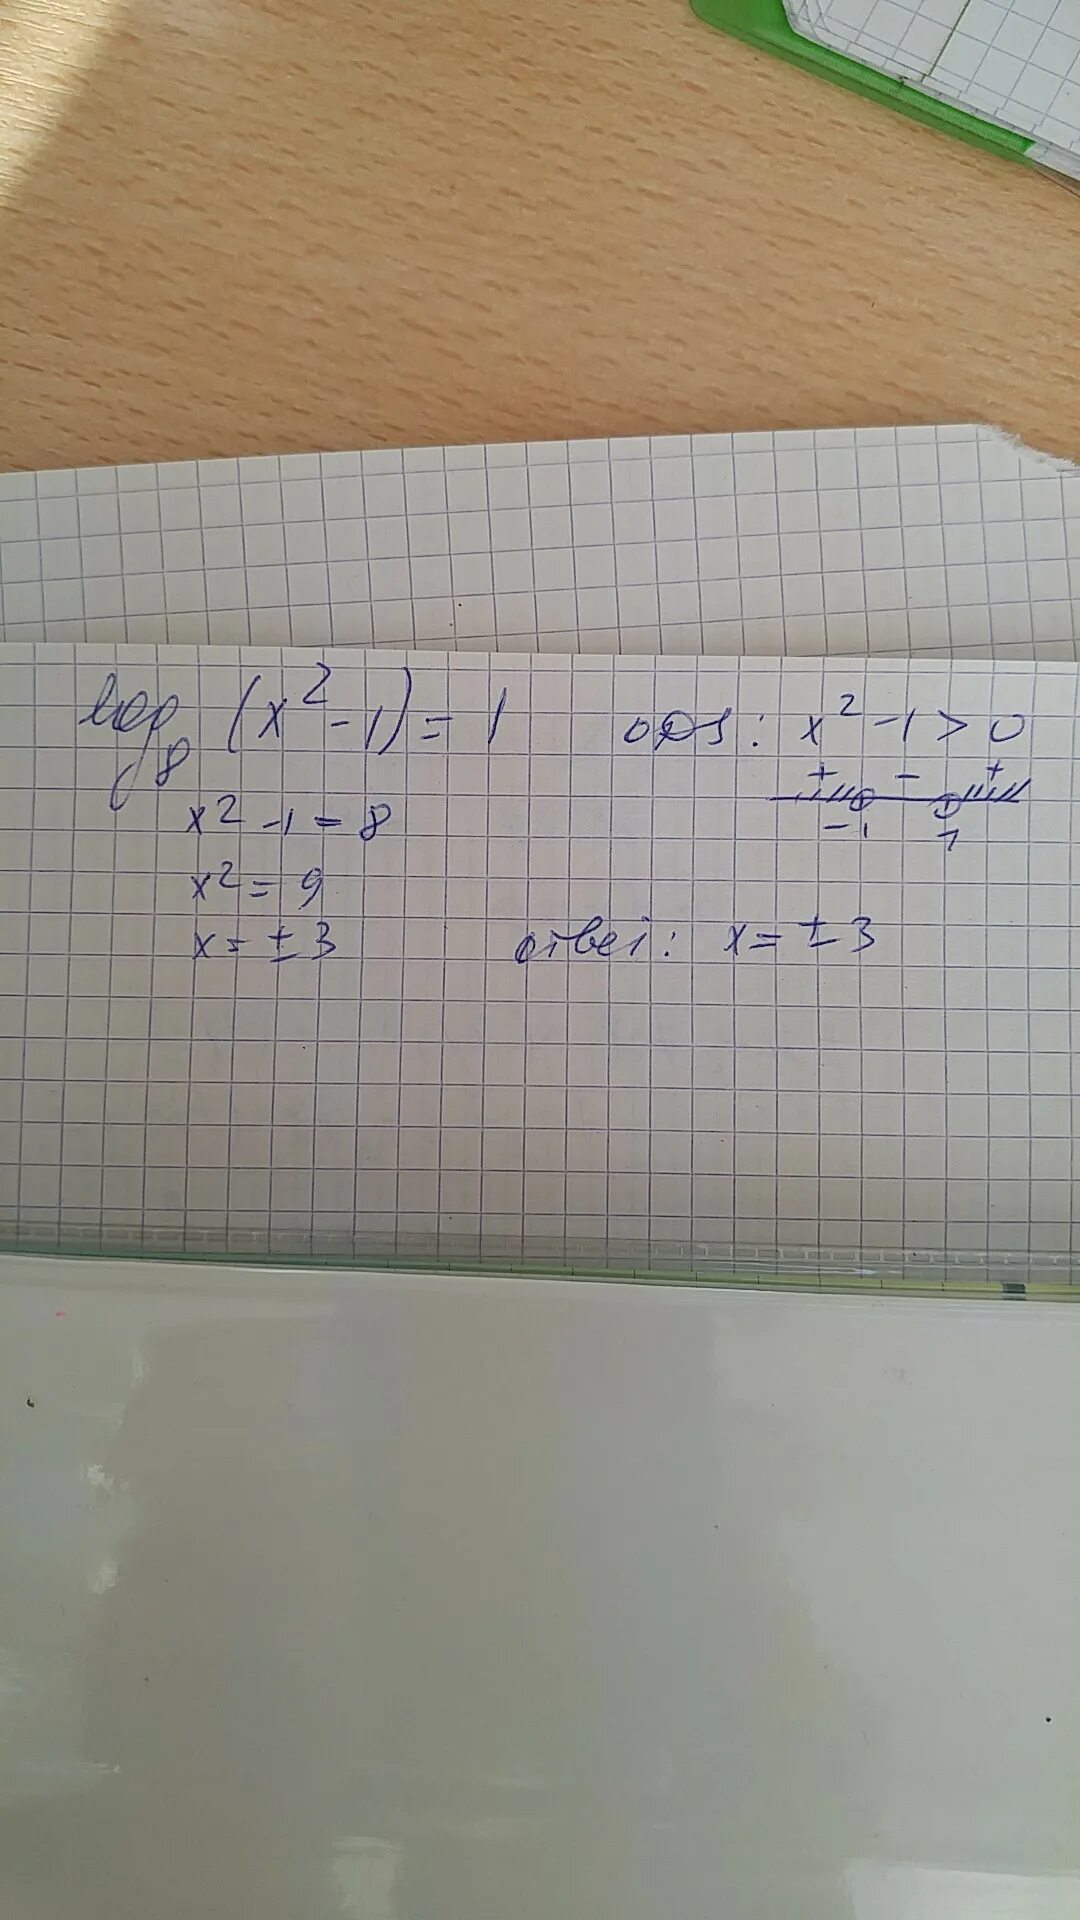 log₈ (x² - 1) = 1
x² - 1 = 8
x² = 9
x = ± 3
одз: x² - 1 > 0
+ - +
-1 1
ответ: x = ± 3